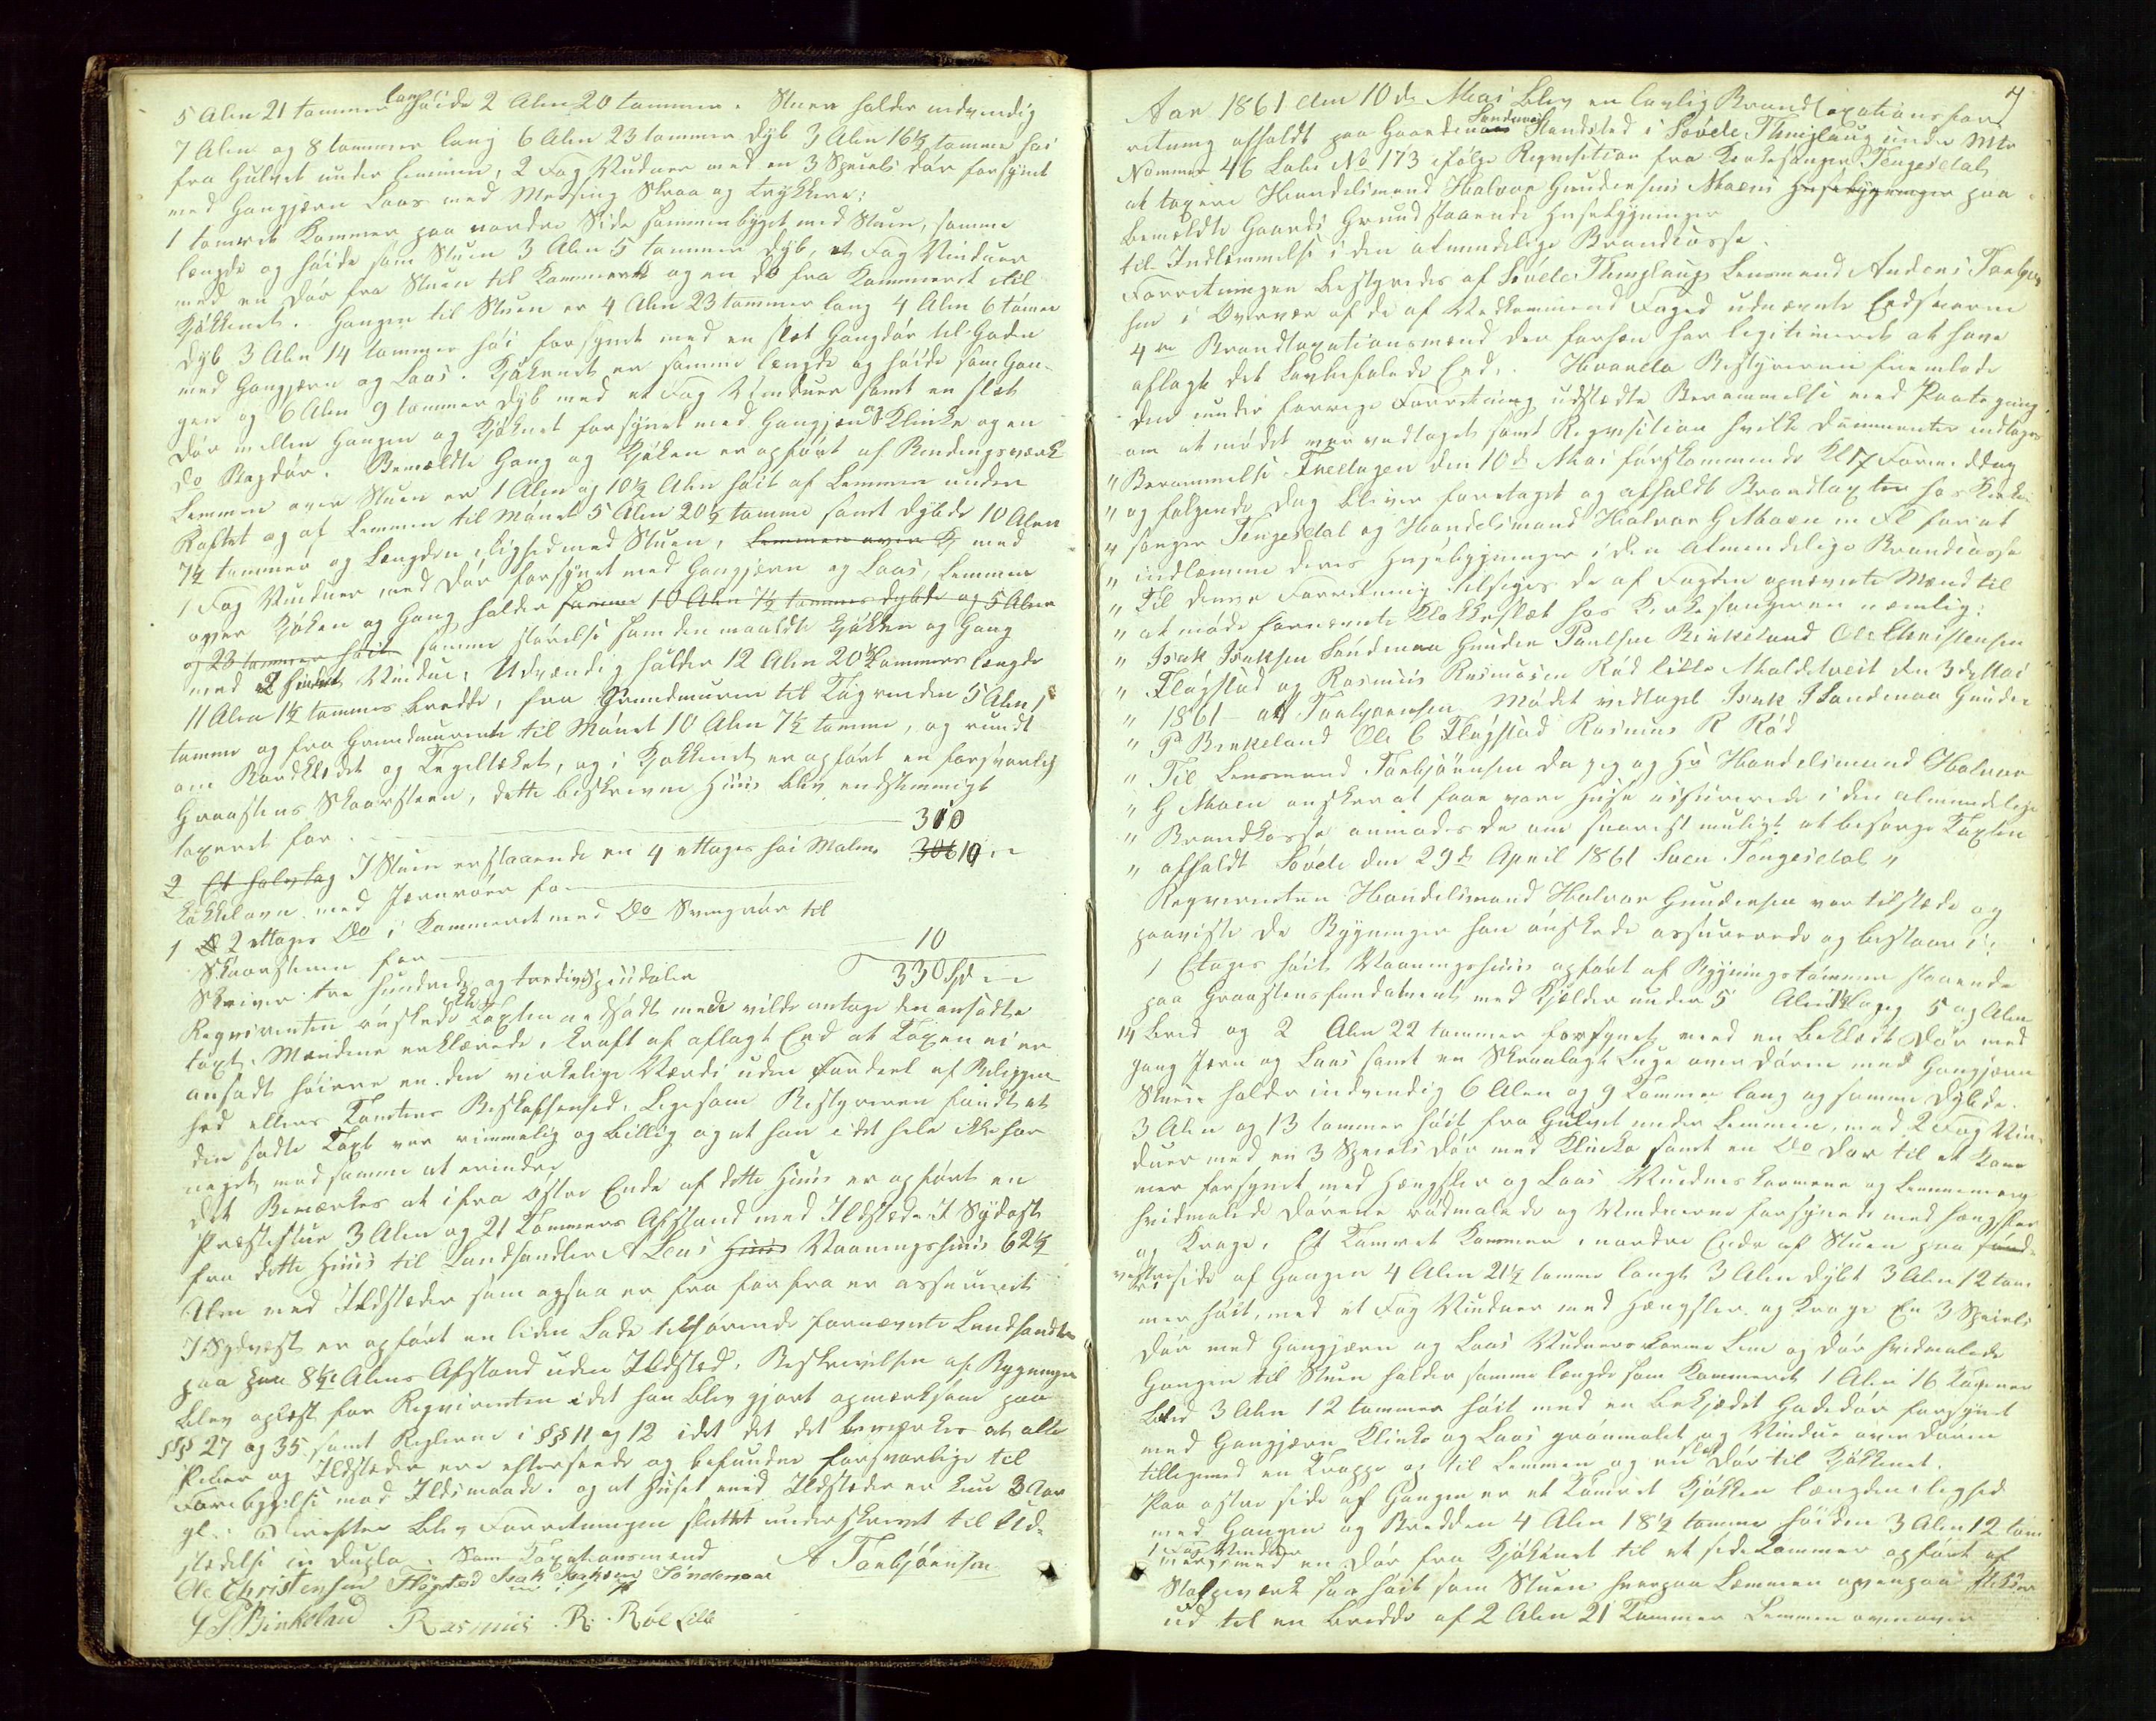 5 Alen 21 tommer lang høide 2 Alen 20 tommer. Stuen holder indvendig
7 Alen og 8 tommer lang 6 Alen 23 tommer dyb 3 Alen 16½ tomme høi
fra Gulvet under Lemmen, 2 Fag Vinduer med en 3 Speiels dør forsynet
med Gangjærn Laas med Messing Skraa og trykkere;
1 tømret Kammer paa nordre Side sammenbyget med Stuen, samme
længde og høide som Stuen 3 Alen 5 tommer dyb, et Fag Vinduer
med en dør fra Stuen til Kammeret og en do fra Kammeret til
Kjøkkenet. Gangen til Stuen er 4 Alen 23 tommer lang 4 Alen 6 tommer
dyb 3 Alen 14 tommer høi forsynet med en slet Gangdør til Gaden
med Gangjærn og Laas. Kjøkenet er samme længde og høide som Gan-
gen og 6 Alen 9 tommer dyb med et Fag Vinduer samt en slet
dør mellem Gangen og Kjøknet forsynet med Gangjærn og Klinke og en
do Bagdør. Bemældte Gang og Kjøken er opført af Bindingsværk
Lemmen over Stuen er 1 Alen og 10½ Alen høit af Lemmen under
Raftet og af Lemmen til Mønet 5 Alen 20½ tomme samt dybde 10 Alen
7½ tommer og Længden lighed med Stuen, Lemmen over Kj med
1 Fag Vinduer med dør forsynet med Gangjærn og Laas, Lemmen
over Kjøken og Gang holder samme 10 Alen 7½ tommes dybde og 5 Alen
og 23 tommer høit samme størelse som den maaldte Kjøkken og Gang
med 2 Vindue, Udvændig holder 12 Alen 20½ tommers længde
11 Alen 1½ tommes bredde, fra Grundmuren til Tagrenden 5 Alen 1
tomme og fra Grundmuren til Mønet 10 Alen 7½ tomme, og rundt
om Bordklædet og Tegeltækket, og i Kjøkkenet er opført en forsvarlig
Graastens Skaarsteen, dette beskrevne Huus blev endstemmigt
taxeret for 310
2 Et halv fag I Stuen er staaende en 4 ettages høi Malm 306 10
kakkelovn med Jernrører for
1 2 ettages Do i Kammeret med Do Svingrør til
Skaarstenen for 10
Skriver tre hundrede og tredive Speidaler 330 Spd
Reqvirenten ønskede ikke Taxten nedsadt men vilde antage den ansadte
taxt. Mændene erklærede, kraft af aflagt Eed at Taxen ei er
ansadt høiere en den virkelige Værdi uden Fordeel af Beliggen
hed ellers Tomtens Beskaffenhed, Ligesom Bestyreren fandt at
den satte Taxt var rimmelig og billig og at han i det hele ikke har
noget mod samme at erindre
Det Bemærkes at ifra østre Ende af dette Huus er opført en
Præstestue 3 Alen og 21 Tommers Afstand med Ildstæde I Sydost
fra dette Huus til Landhandler A Lea's Huus Vaaningshuus 62½
Alen med Ildstæder som ogsaa er fra før fra er assureret
I Sydvest er opført en liden Lade tilhørende fornævnte Landhandler
paa 8½ Alens Afstand uden Ildsted, Beskrivelsen af Bygningen
blev oplest for Reqvirenten idet han blev gjort opmerksom paa
§§§ 27 og 35 samt Reglerne i §§ 11 og 12 idet det det bemærkes at alle
Piber og Ildstæder ere efterseede og befundne forsvarlige til
Forebyggelse mod Ildsvaade. og at huset med Ildstæder er kun 3 Aar
gl. Derefter blev Forretningen sluttet underskrevet til Ud-
stædelse in duplo. Som Taxationsmænd
Ole Christensen Fløgstad Isak Isaksen Søndenaa A Torbjørnsen
G P. Birkeland Rasmus R. Rød Lille
4
Aar 1861 den 10de Mai Blev en lovlig Brandtaxationsfor
retning afholdt paa Gaarden Sandvig Strandsted i Søvde Thinglaug under Mtr
Nommer 46 Løbe No 173 ifølge Reqvisition fra Kirkesanger Tengesdal
at taxere Handelsmand Halvor Gundersens Moens Husebygninger paa
bemeldte Gaards Grund staaende Husebygninger
til Indlemmelse i den almindelige Brandcasse.
Forretningen bestyredes af Søvde Thinglaugs Lensmand Anders Torbjørn
sen i Overvær af de af Vedkommend Foged udnævnte Eedsvorne
4re Brandtaxationsmænd der forhen har legitimeret at have
aflagt det Lovbefalede Eed. Hvorda Bestyreren fremlade
den under forrige Forretning udstædte Berammelse med Paategning
om at mødet var vedtaget samt Reqvisition hvilke dommenter indtages
" Berammelse Fredagen den 10de Mai førstkommende Kl 7 Formiddag
" og følgende dag bliver foretaget og afholdt Brandtaxten hos Kirke
" sanger Tengesdal og Handelsmand Halvor G Moen m Fl for at
" indlemme deres Husebygninger i den Almindelige Brandcasse
" Til denne Forretning tilsiges de af Fogden opnævnte Mænd til
" at møde fornævnte Klokkeslæt hos Kirkesangeren nemlig:
" Isak Isaksen Søndenaa Gunder Poulsen Birkeland Ole Christensen
" Fløgstad og Rasmus Rasmusen Rød lille Maldetveit den 3de Mai
" 1861 A Torbjørnsen Mødet vedtaget Isak I Søndenaa Gunder
" P Birkeland Ole C Fløgstad Rasmus R Rød
" Til Lensmand Torbjørnsen da jeg og Hr Handelsmand Halvor
" G Moen ønsker at faae vore Huse assurerede i den almindelige
" Brandkasse anmodes de om snarest muligt at besørge Taxten
" afholdt Søvde den 29de April 1861 Sven Tengesdal "
Reqvirenten Handelsmand Halvor Gundersen var tilstæde og
paaviste de Bygninger han ønskede assurerede og bestaar i:
1 Etages høit Vaaningshuus opført af Bygningstømmer staaende
paa Graastensfundament med Kjelder under 5 Alen 5 og Alen
14 bred og 2 Alen 22 tommer forsynet med en beklædt Dør med
gang Jern og Laas samt en Skraalagt Luge over døren med Gangjærn
Stuen holder indvendig 6 Alen og 9 Tommer lang og samme Dybde.
3 Alen og 13 tommer høit fra Gulvet under Lemmen, med 2 Fag Vin-
duer med en 3 Speiels dør med Klinke samt en Do dør til et Kam
mer forsynet med Hængsler og Laas Vindueskarmene og Lemmen
hvidmalede dørene rødmalede og Vinduerne forsynede med hængsler
og Kroge. Et Tømret Kammer nordre Ende af Stuen paa
vestre side af Gangen 4 Alen 21½ tomme langt 3 Alen dybt 3 Alen 12 tom
mer høit, med et Fag Vinduer med Hængsler og Kroge En 3 Speiels
dør med Gangjærn og Laas Vindueskarme Lem og dør hvidmalede
Gangen til Stuen holder samme længde som Kammeret 1 Alen 16 Tommer
bred 3 Alen 12 tommer høit med en beklædt Gadedør forsynet
med Gangjærn Klinke og Laas grønmalet og Vindue over døren
tilligemed en Trappe op til Lemmen og en slet dør til Kjøkkenet.
Paa østre side af Gangen er et Tømret Kjøkken længden lighed
med Gangen og Bredden 4 Alen 18½ tomme høiden 3 Alen 12 tom
1 Fag Vinduer
mer med en dør fra Kjøkenet til et sidekammer opført af
Stolpeværk saa høit som Stuen hvorpaa Lemmen ovenpaa
ud til en bredde af 2 Alen 21 Tommer Lemmen ovenover